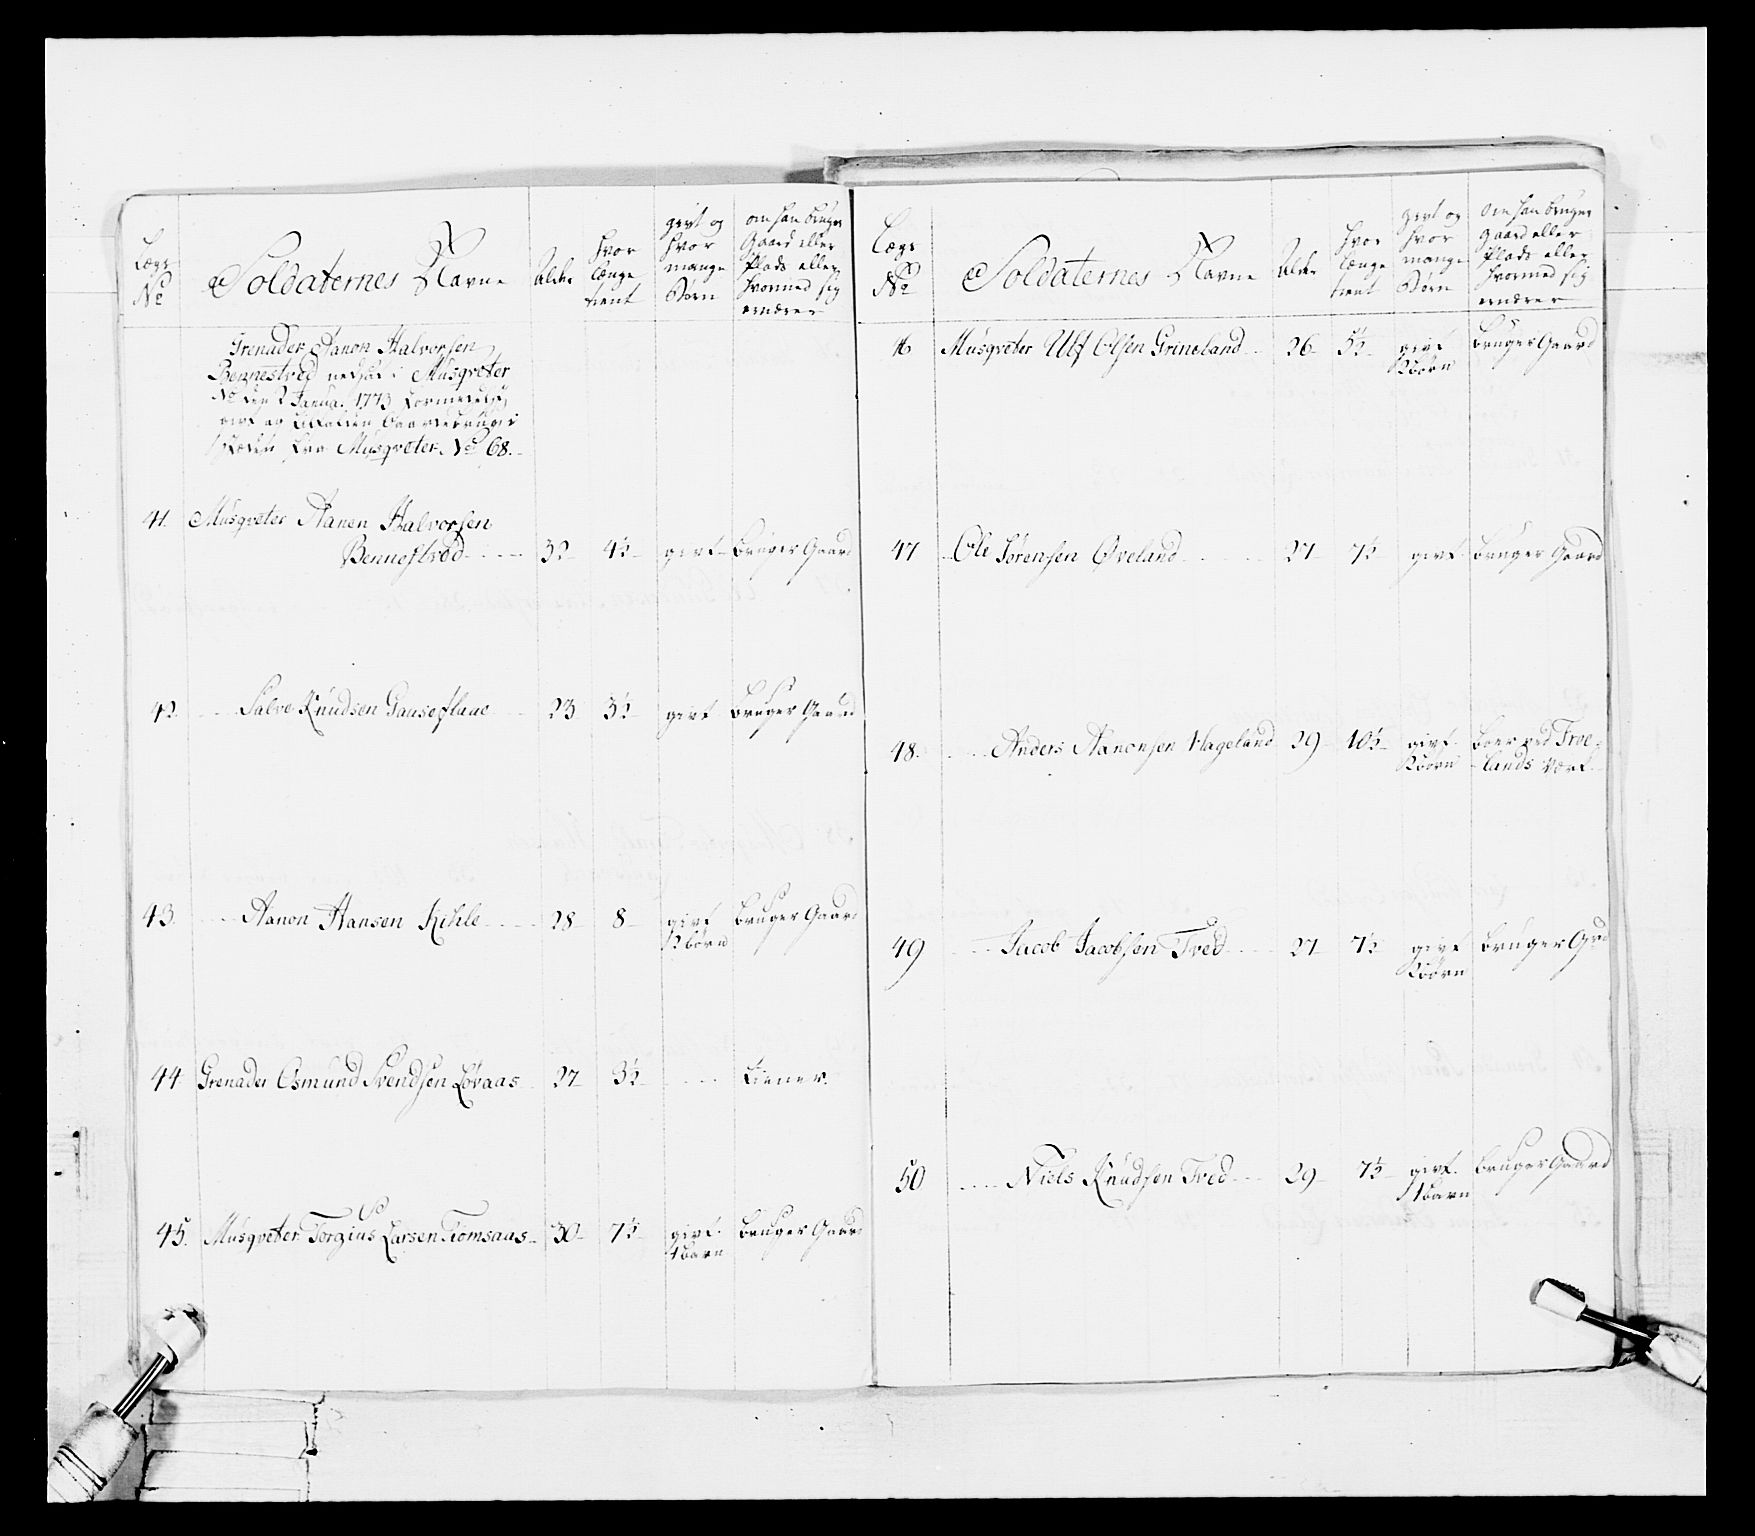 Lægs No
Soldaternes Navne
Alder
hvor længe tient
givt og hvor mange Börn
om han bruger Gaard eller Plads eller hvormed sig ernærer
Grenader Aanon Halvorsen
Bennestvod nedsat i Musqveter
No den 2 Janua. 1773 formedelst
givt og
fra Musqveter No 68.
41. Musqveter Aanen Halvorsen
Bennestvod 32 4½ givt bruger Gaard
42. Salve Knudsen Gauseflaae 23 3½ givt bruger Gaard
43. Aanon Hansen Kihle 28 8 givt bruger Gaard
2 børn
44 Grenader Osmund Svendsen Løvaas 27 3½ tiener.
45. Musqveter Torgius Larsen Tiomsaas 30 7½ givt bruger Gaard
1 barn
Lægs No
Soldaternes Navne
Alder
hvor længe tient
givt og hvor mange Börn
om han bruger Gaard eller Plads eller hvormed sig ernærer
46 Musqveter Ulf Olsen Grineland 26 5½ givt bruger Gaard
2 børn
47 Ole Sørensen Øveland 27 7½ givt bruger Gaard
48. Anders Aanonsen Hageland 29 10½ givt boer ved Froe-
2 børn lands Værk
49 Jacob Jacobsen Tved 27 7½ givt bruger Grd
2 børn
50 Niels Knudsen Tved 29 7½ givt bruger Gaard
1 barn